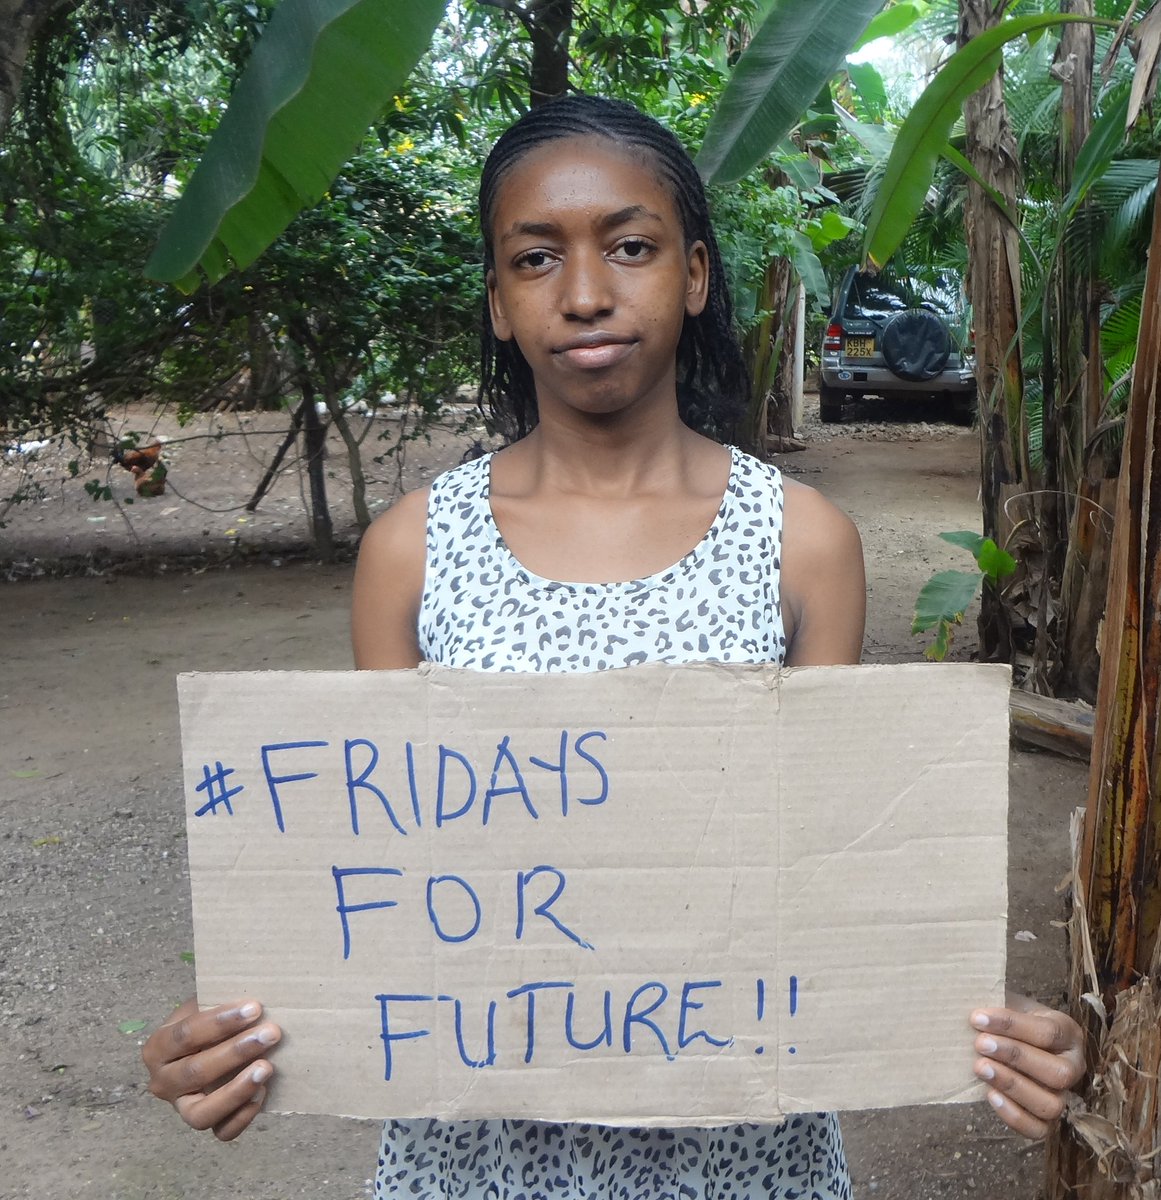 KBH
225X
#FRIDAYS
FOR
FUTURE!!